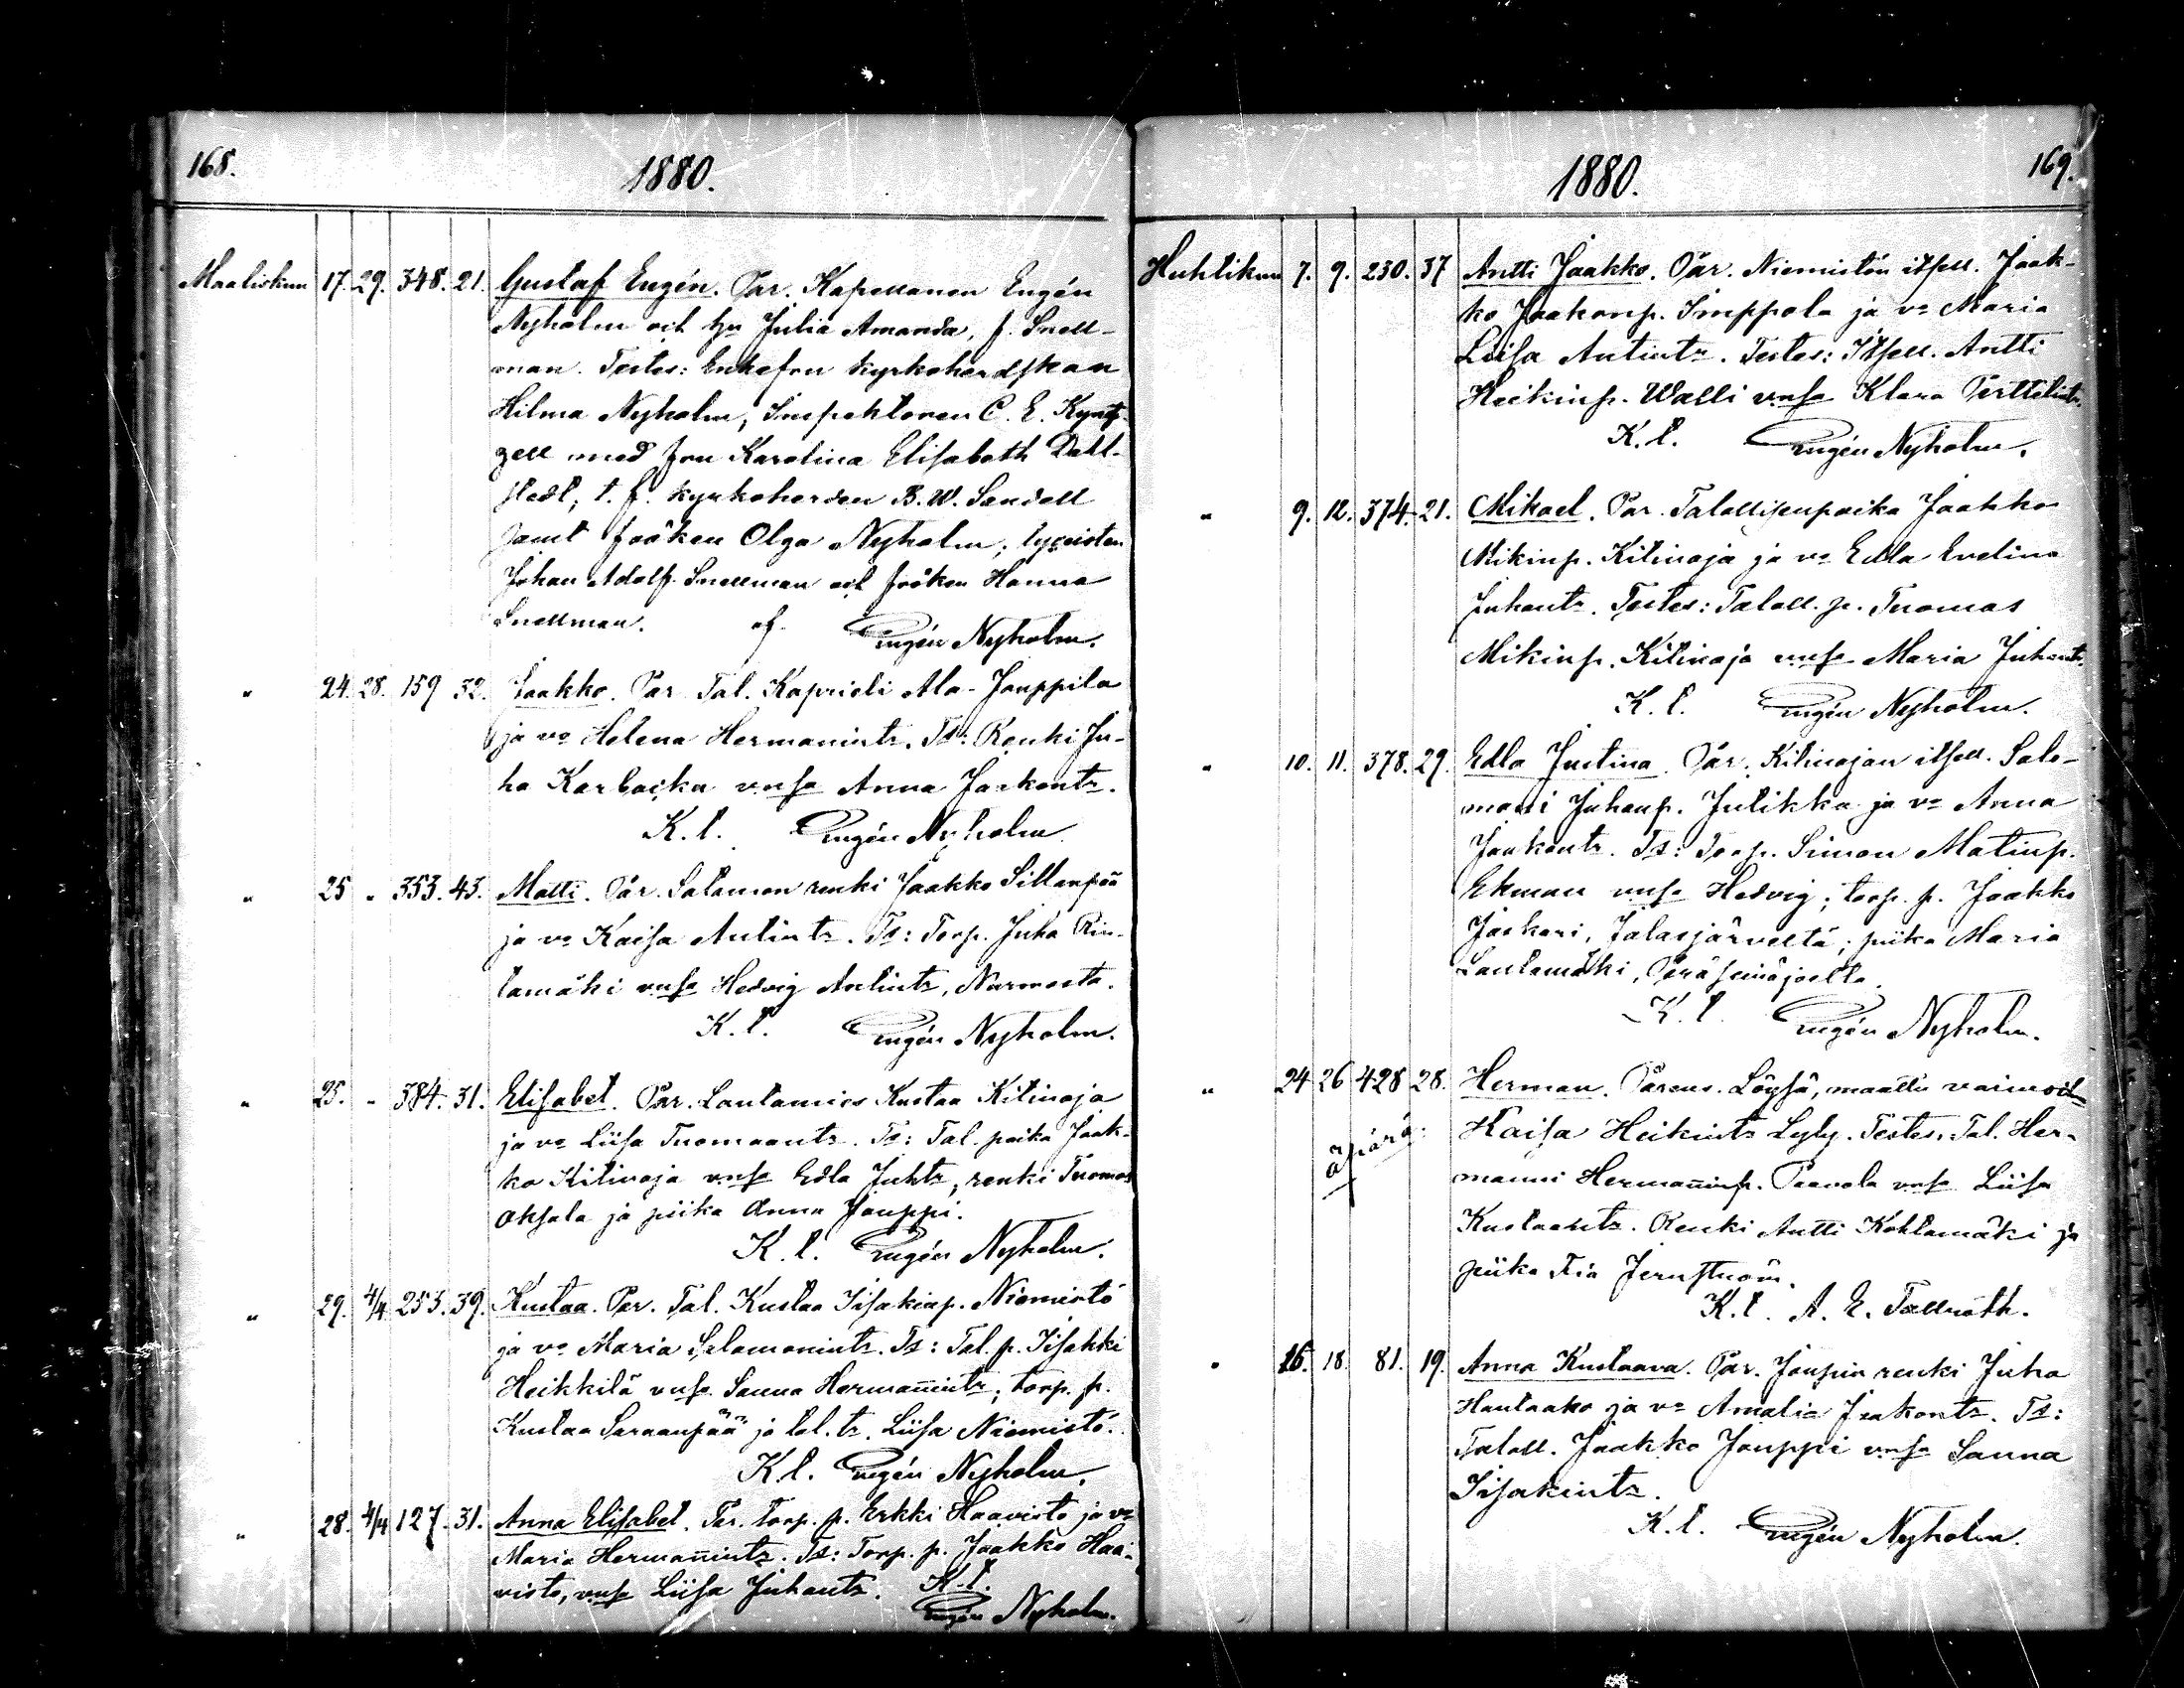 168.
1880.
Maaliskuu 17. 29. 348. 21. Gustaf Eugén. Par. Kapellanen Eugén
Nyholm och hu Julia Amanda, f. Snell-
man. Testes: Enkefru kyrkoherdskan
Hilma Nyholm, Inspektoren C. E.
zell med fru Karolina Elisabeth Dahl-
stedt, t. f. kyrkoherden B. W. Sandell
samt fröken Olga Nyholm; lyceisten
Johan Adolf Snellman och fröken Hanna
Snellman. af. Eugén Nyholm.
" 24. 28. 159 32. Jaakko. Par. Tal. Kaprieli Ala-Jouppila
ja vo Helena Hermanintr. Ts: Renki Ju-
ha Karbacka vnsa Anna Jaakontr.
K. l. Eugén Nyholm
" 25 " 353. 43. Matti. Pär. Salamon renki Jaakko Sillanpää
ja vo Kaisa Antintr. Ts: Torp. Juha Rin-
tamäki vnsa Hedvig Antintr, Nurmosta.
K. l. Eugén Nyholm.
" 25. " 384. 31. Elisabet. Par. Lautamies Kustaa Kitinoja
ja vo Liisa Tuomaantr. Ts: Tal. poika Jaak-
ko Kitinoja vnsa Edla Juhtr, renki Tuomas
Oksala ja piika Anna Jouppi.
K. l. Eugén Nyholm.
" 29. 4/4 253. 39. Kustaa. Par. Tal. Kustaa Iisakinp. Niemistö
ja vo Maria Salamonintr. Ts: Tal. p. Iisakki
Heikkilä vnsa Sanna Hermanintr; torp. p.
Kustaa Saraanpää ja tal. tr. Liisa Niemistö.
K. l. Eugén Nyholm.
" 28. 4/4 127. 31. Anna Elisabet. Par. torp. p. Erkki Haavisto ja vo
Maria Hermanintr. Ts: Torp. p. Jaakko Haa-
visto, vnsa Liisa Juhantr. K. l.
Eugén Nyholm.
1880.
169.
Huhtikuu 7. 9. 230. 37 Antti Jaakko. Pär. Niemistön itsell. Jaak-
ko Jaakonp. Imppola ja vo Maria
Liisa Antintr. Testes: Itsell. Antti
Heikinp. Walli vnsa Klara Perttelintr.
K. l. Eugén Nyholm.
" 9. 12. 374. 21. Mikael. Par. Talollisenpoika Jaakko
Mikinp. Kitinoja ja vo Edla Evelina
Juhantr. Testes: Taloll. p. Tuomas
Mikinp. Kitinoja vnsa Maria Juhantr.
K. l. Eugén Nyholm.
" 10. 11. 378. 29. Edla Justina. Pär. Kitinojan itsell. Salo-
moni Juhanp. Julikka ja vo Anna
Jaakontr. Ts: Torp. Simon Matinp.
Ekman vnsa Hedvig; torp. p. Jaakko
Jaskari, Jalasjärveltä; piika Maria
Lautamäki, Peräseinäjoelta.
K. l. Eugén Nyholm.
" 24 26 428 28. Herman. Parens. Löysä, maattu vaimoih.
äpärä.
Kaisa Heikintr Lyly. Testes. Tal. Her-
manni Hermanninp. Paavola vnsa Liisa
Kustaantr. Renki Antti Kohtamäki ja
piika Fia Jernström.
K. l. A. E. Tallroth.
" 16. 18. 81. 19. Anna Kustaava. Par. Joupin renki Juha
Hautaako ja vo Amalia Jaakontr. Ts:
Taloll. Jaakko Jouppi vnsa Sanna
Iisakintr.
K. l. Eugén Nyholm.